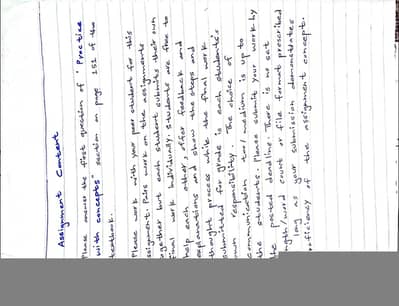 Assignment Content
Please answer the first question of "Practice
with concepts" section on page 151 of the
textbook.
Please work with your peer student for this
assignment. Pairs work on the assignments
together but each student submits their own
final work individually. Students are free to
help each other, offer feedback and
explanations and show the steps and
thought process while the final work
submitted for grade is each student's
own responsibility. The choice of
communication tool/medium is up to
the students. Please submit your work by
the posted deadline. There is no set
length/word count or file format prescribed
long as your submission demonstrates
proficiency of the assignment concept.